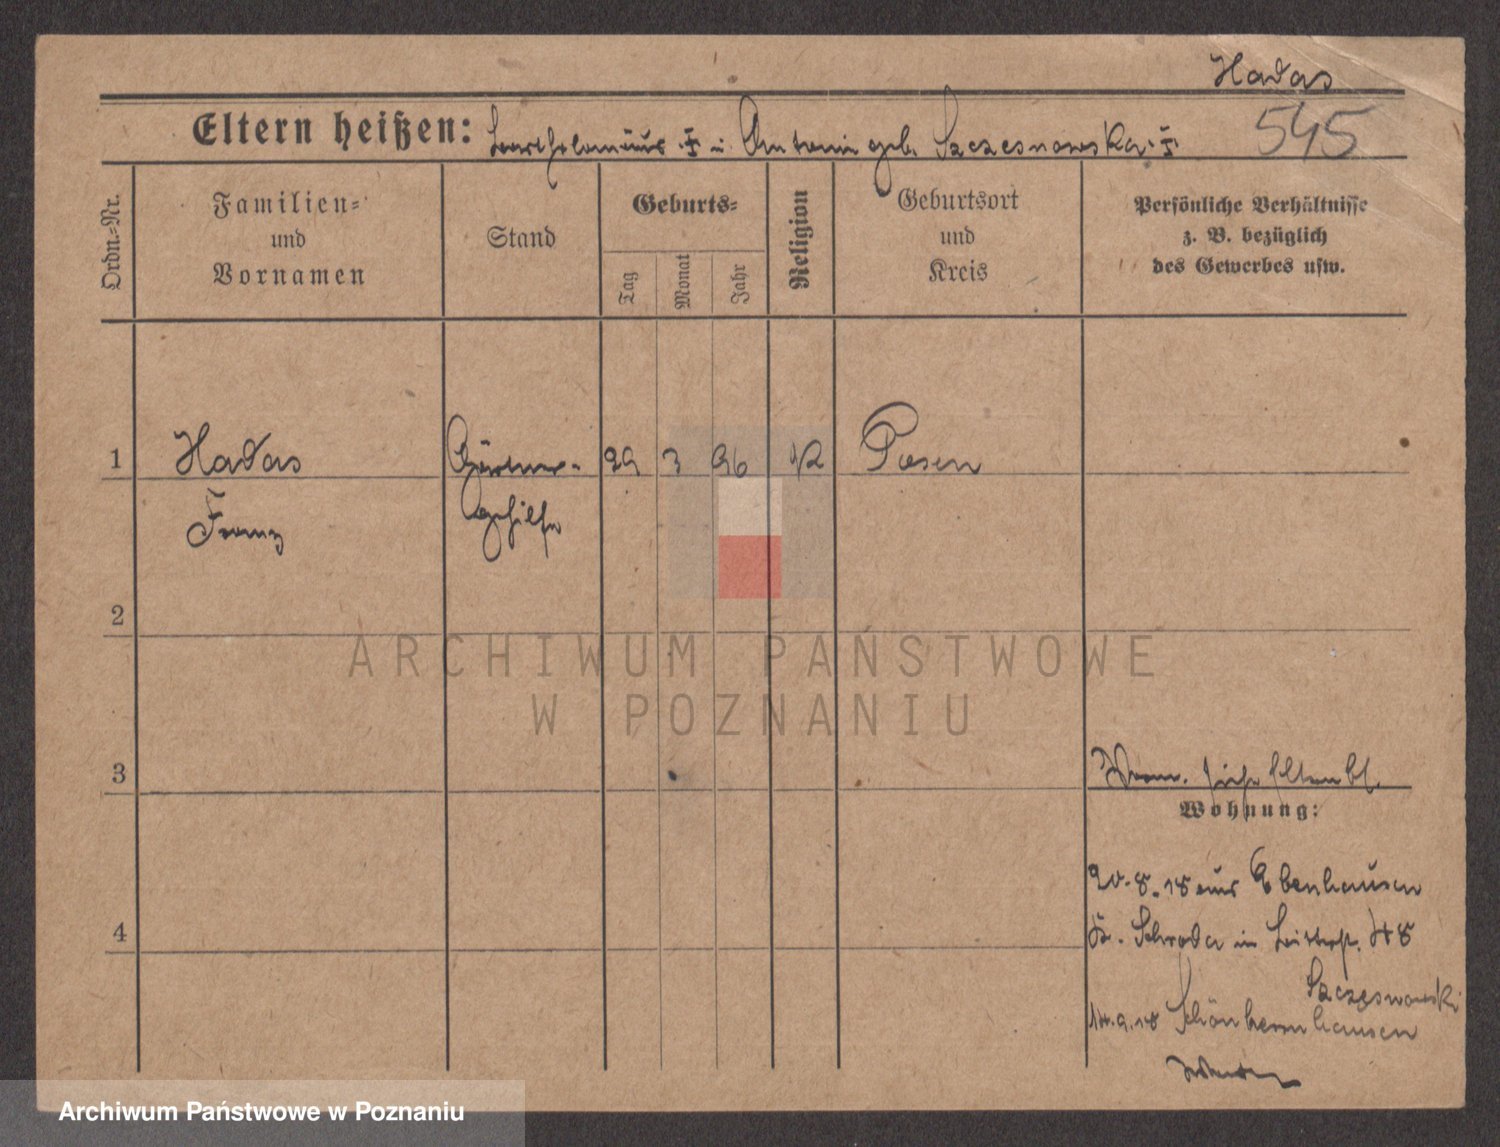 Hadas
545
Eltern heißen: Bartholomäus † u. Antonie geb. Szczesnowska †
Ordn.-Nr.
Familien-
und
Vornamen
Stand
Geburts-
Tag
Monat
Jahr
Religion
Geburtsort
und
Kreis
Persönliche Verhältnisse
z. B. bezüglich
des Gewerbes usw.
1
Hadas
Franz
Gärtner-
gehilfe
29
3
96
K
Posen
2
3
4
siehe Elternbl.
Wohnung:
20.8.18 aus Ebenhausen
Kr. Schroda in 48
Szczęsnowski
14.9.18 Schönherrnhausen
ARCHIWUM PAŃSTWOWE
W POZNANIU
Archiwum Państwowe w Poznaniu